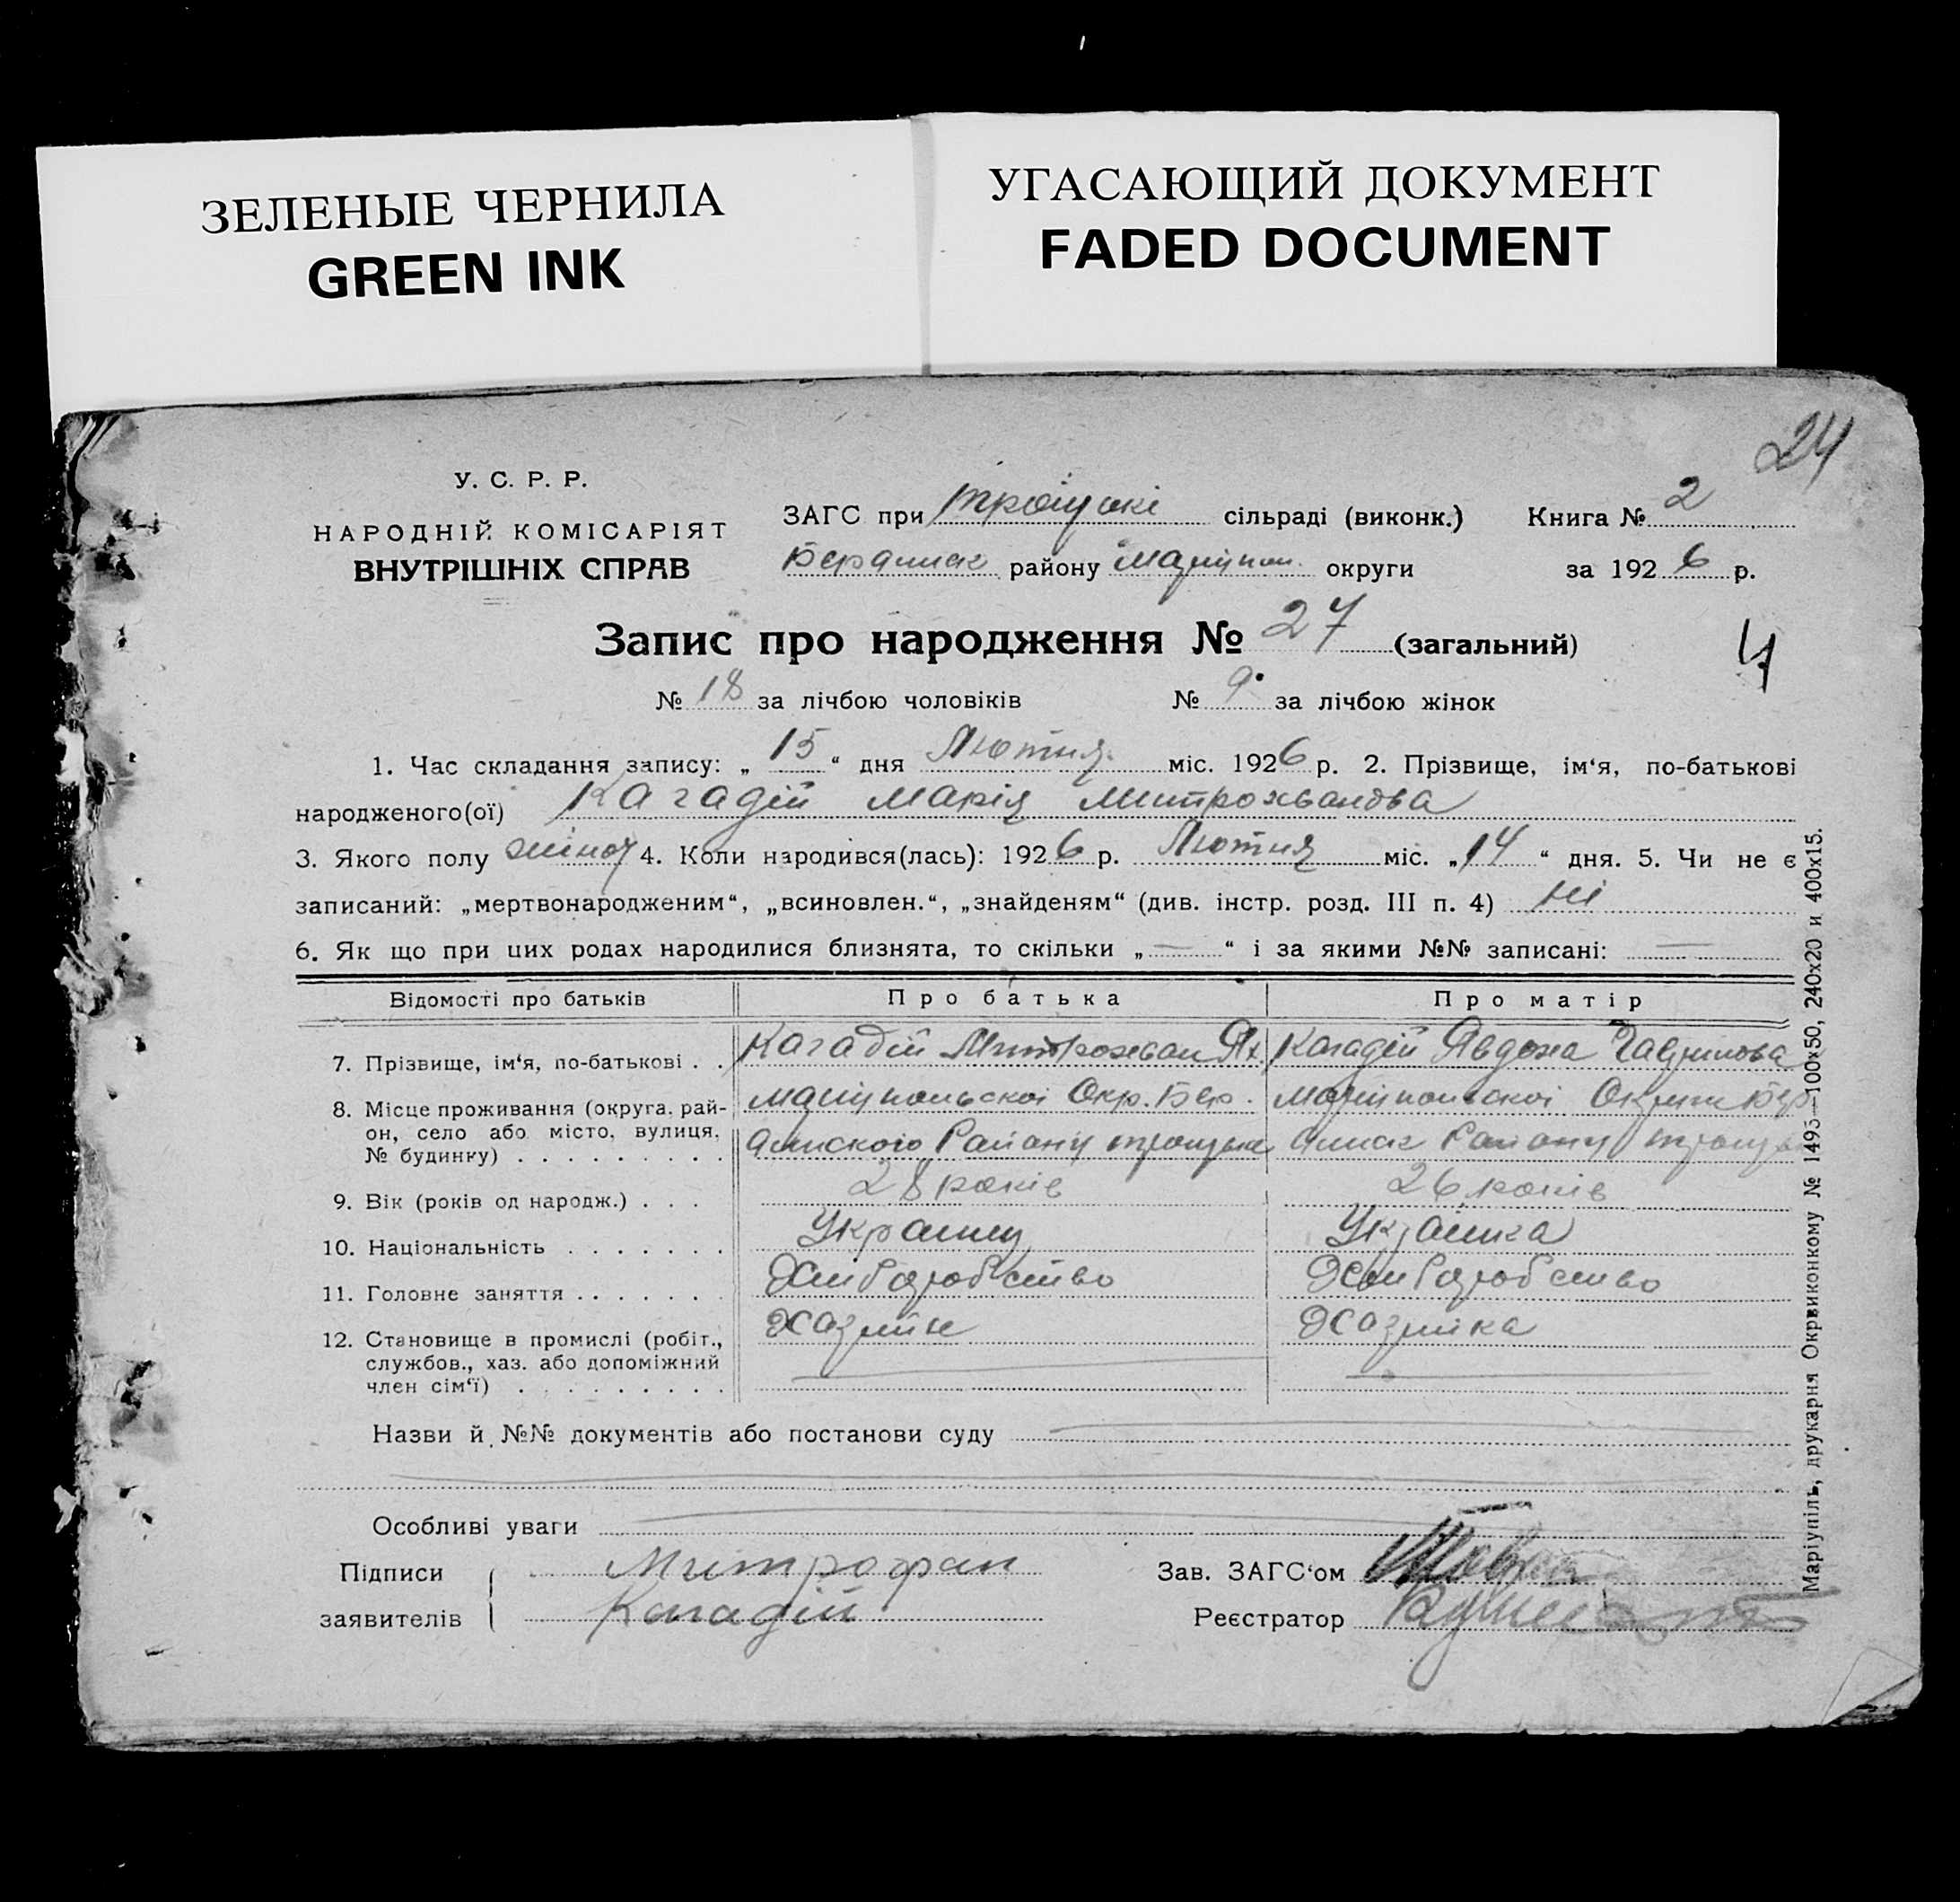 ЗЕЛЕНЫЕ ЧЕРНИЛА
GREEN INK
УГАСАЮЩИЙ ДОКУМЕНТ
FADED DOCUMENT
24
У. С. Р. Р.
НАРОДНІЙ КОМІСАРІЯТ
ВНУТРІШНІХ СПРАВ
ЗАГС при Троіцькі сільраді (виконк.) Книга № 2
району Маріупол. округи за 1926 р.
Запис про народження № 27 (загальний)
4
№ 18 за лічбою чоловіків № 9 за лічбою жінок
1. Час складання запису: „ 15 “ дня Лютня міс. 1926 р. 2. Прізвище, ім‘я, по-батькові
народженого(ої) Кагадій Марія Митрохванова
3. Якого полу жіноч 4. Коли народився(лась): 1926 р. Лютня міс. „14 “ дня. 5. Чи не є
записаний: „мертвонародженим“, „всиновлен.“, „знайденям“ (див. інстр. розд. III п. 4) Ні
6. Як що при цих родах народилися близнята, то скільки „ — “ і за якими №№ записані: —
Відомості про батьків Про батька Про матір
7. Прізвище, ім‘я, по-батькові . . Кагадій Митрохван Як. Кагадій Явдоха Гаврилова
8. Місце проживання (округа, рай-
он, село або місто, вулиця,
№ будинку) . . . . . . . . . Маріупольскоі Окр. Бер. Маріупольскоі Округи Бер
Району Троіцьке Району
9. Вік (років од народж.) . . . 28 років 26 років
10. Національність . . . . . . . Украінец Украінка
11. Головне заняття . . . . . . . Хліборобство Хліборобство
12. Становище в промислі (робіт.,
службов., хаз. або допоміжний
член сім‘ї) . . . . . . . . . Хазяїн Хазяйка
Назви й №№ документів або постанови суду
Особливі уваги
Підписи Митрофан Зав. ЗАГС‘ом
заявителів Кагадій Реєстратор
Маріупіль, друкарня Окрвиконкому № 1495—100х50, 240х20 и 400х15.